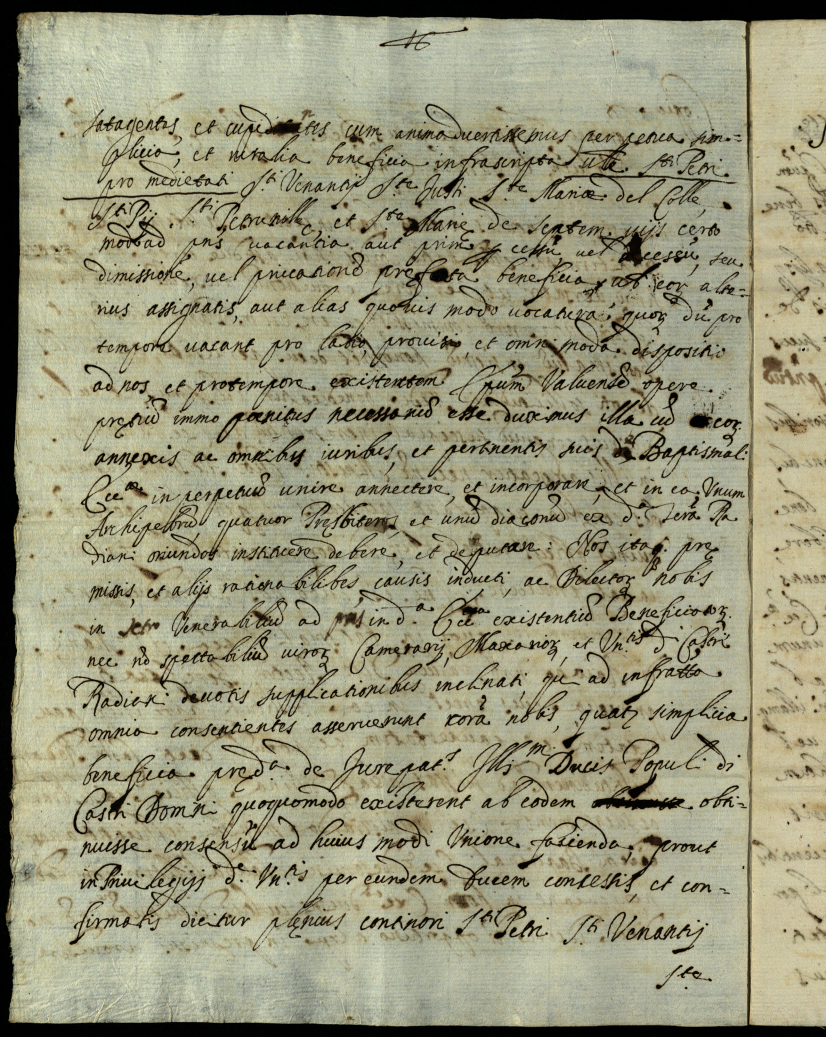 satagentes, et cupientes cum animadvertissemus perpetua sim=
plicia, et ruralia beneficia infrascripta Sti Petri
pro medietati Sti Venantij Ste Justi Ste Mariæ del Colle,
Sti Pij Sti Petronille, et Ste Marie de septem vijs certo
modo ad pns vacantia aut prim p cessū vel decessū, seu
dimissionē, vel privationē prefata beneficia alte=
rius assignatis, aut alias quovis modo vocatura quor dū pro
tempore vacant pro ladio, provisio, et omnimoda dispositio
ad nos et protempore existentem Epūm Valuensē opere
pretiū immo pœnitus necessariū esse duximus illa cū eor
annexis ac omnibus iuribus, et pertinentis suis dᵉ Baptismali
Ecc in perpetuū unire annectere, et incorporare, et in ea Vnum
Archipbrū, quatuor Presbiteros, et unū diaconū ex dᵃ Terra Ra
diani oriundos instituere debere, et deputare: Nos itaq pre
missis, et alijs rationabilibes causis inducti, ac Dilector nobis
in Venerabiliū ad pns in dᵃ Ecca existentiū Beneficiator
nec nō spectabiliū viror Camerarij, Maxaror, et Vntis dⁱ Castri
Radiani devotis supplicationibus inclinati, qui ad infratta
omnia consentientes asseruerunt corā nobis, quatz simplicia
beneficia predᵃ de Jurepatˢ Illmi Ducis Populi di
Castri Domini quoquomodo existerent ab eodem obti=
nuisse consensū ad huius modi Vnione facienda, prout
in Privilegijs dᵉ Vntis per eundem Ducem concessis, et con=
firmatis dicitur plenius contineri Sti Petri Sti Venantij
Ste